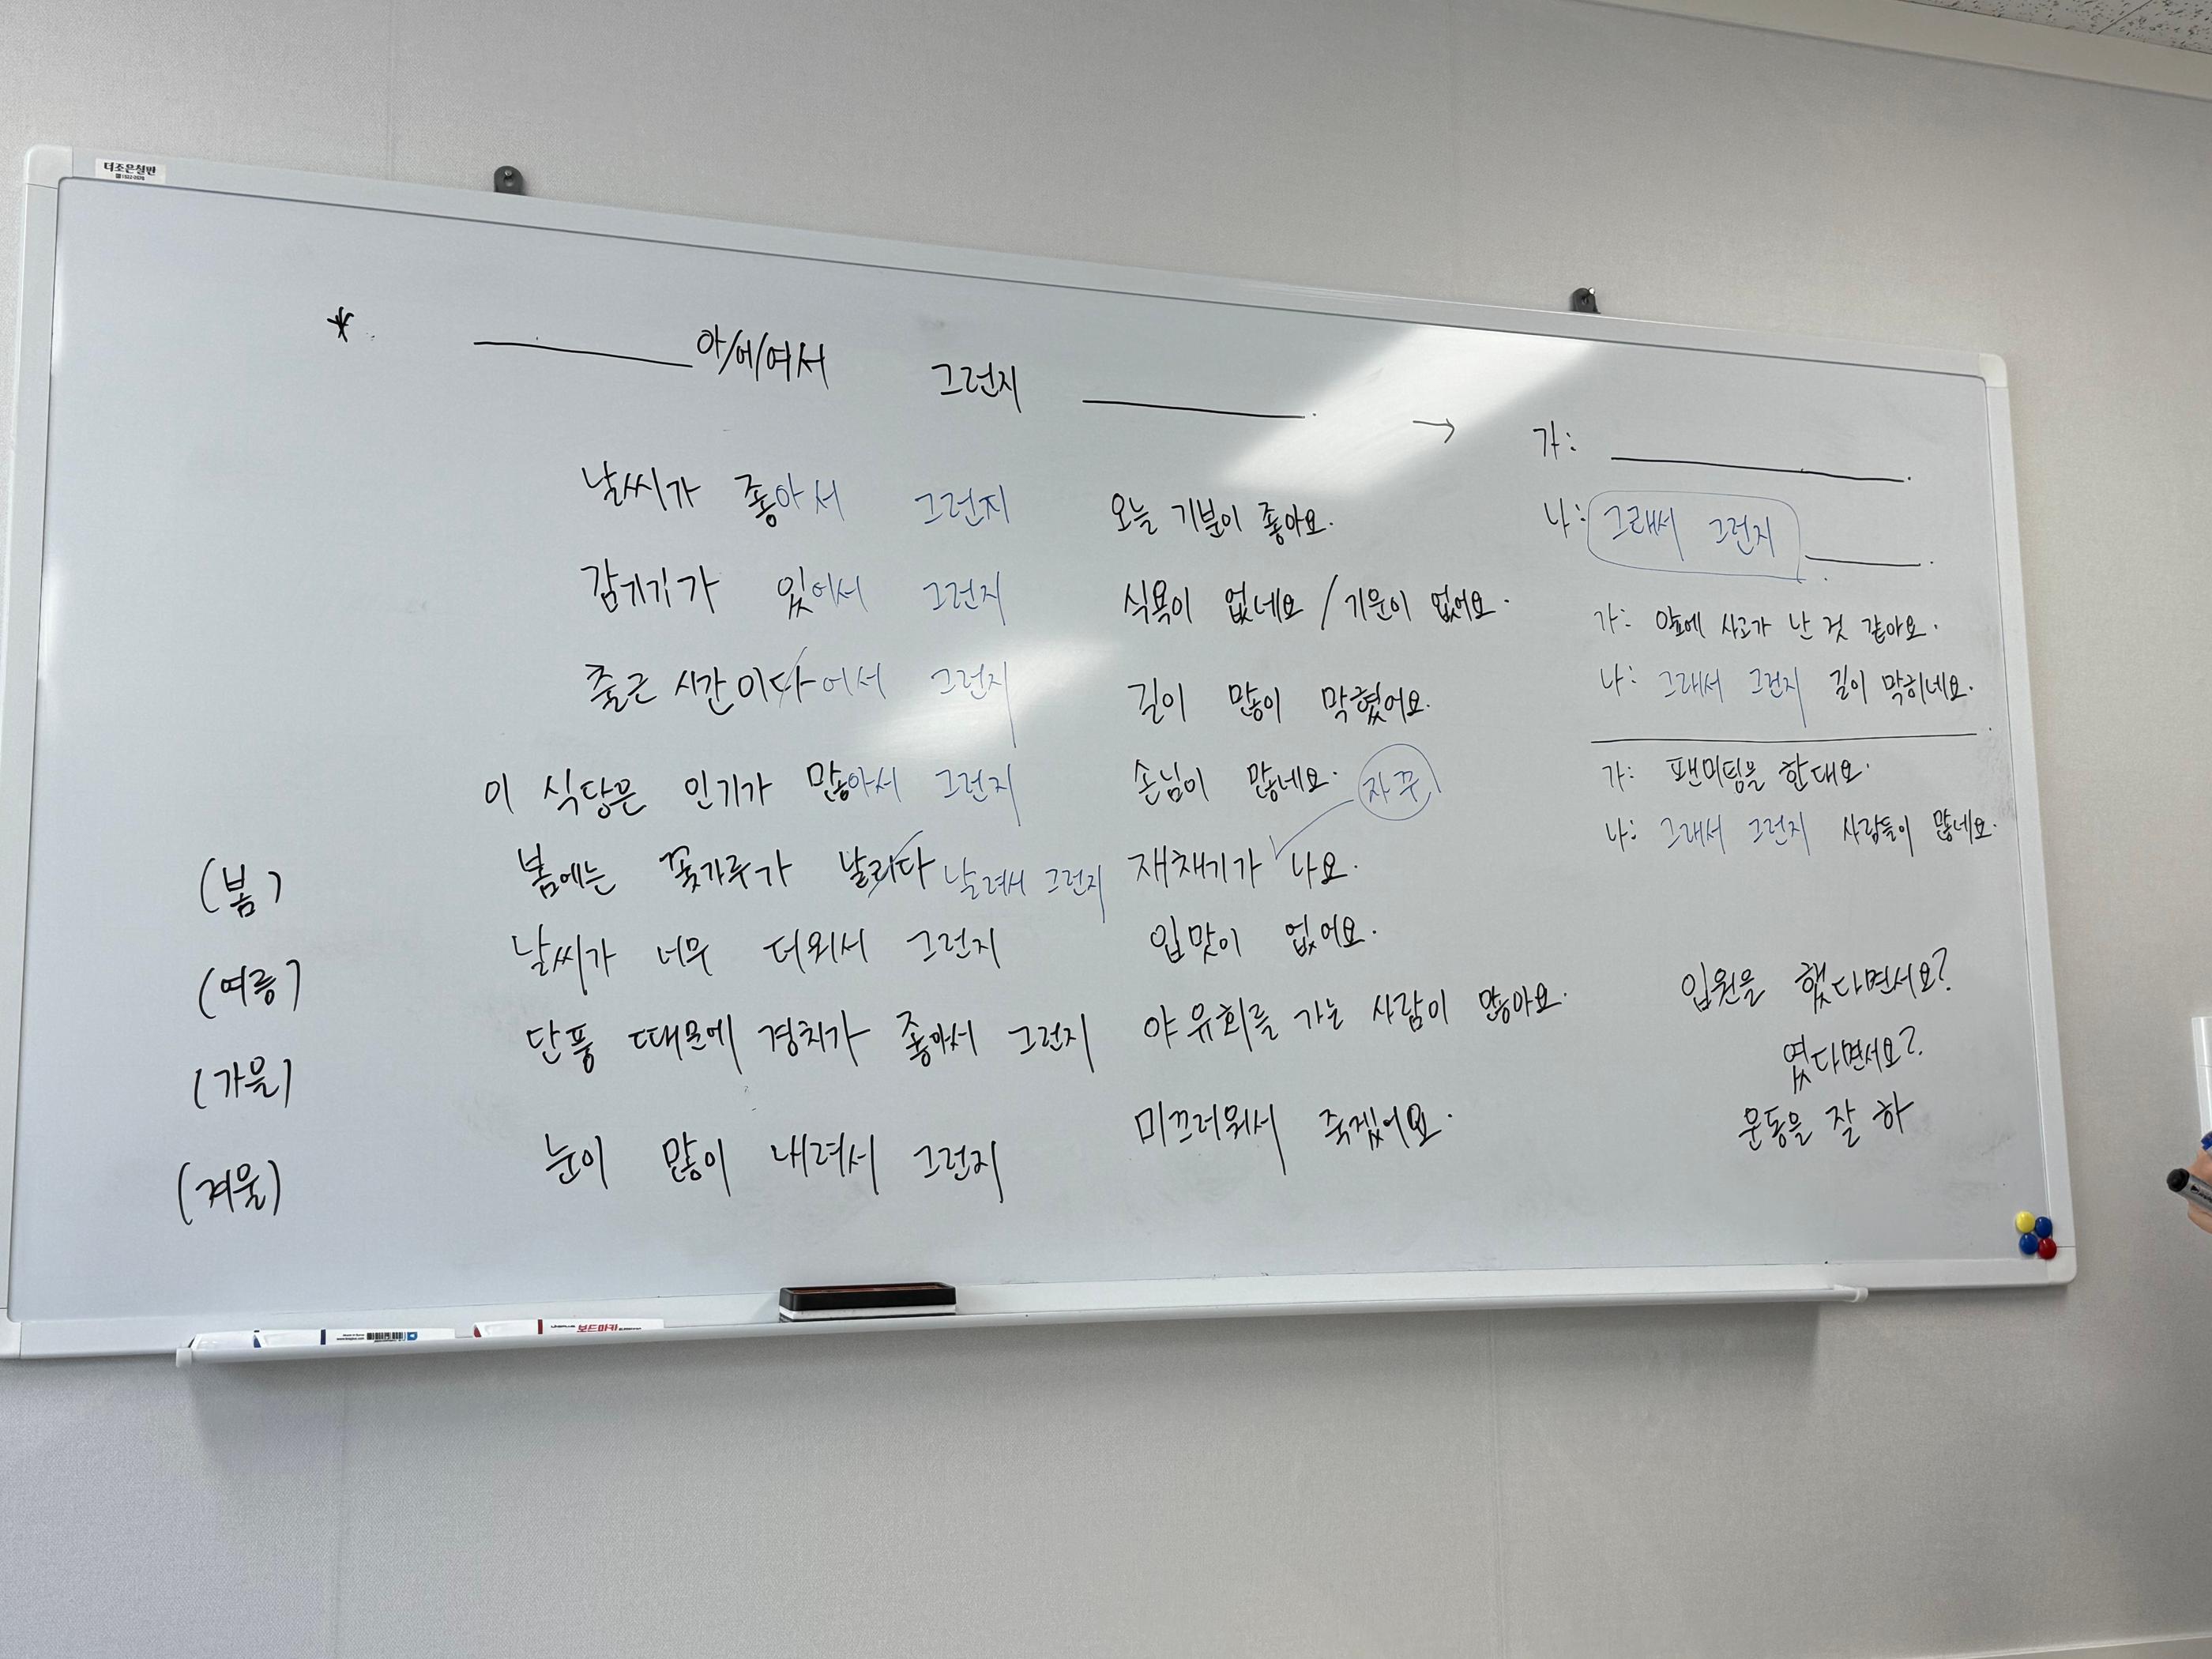 더조은칠판
* ____ 아/어/여서 그런지 ____. →
날씨가 좋아서 그런지 오늘 기분이 좋아요.
감기기가 있어서 그런지 식욕이 없네요 / 기운이 없어요.
출근 시간이다어서 그런지 길이 많이 막혔어요.
이 식당은 인기가 많아서 그런지 손님이 많네요. 자꾸
(봄) 봄에는 꽃가루가 날리다 날려서 그런지 재채기가 나요.
(여름) 날씨가 너무 더워서 그런지 입맛이 없어요.
(가을) 단풍 때문에 경치가 좋아서 그런지 야유회를 가는 사람이 많아요.
(겨울) 눈이 많이 내려서 그런지 미끄러워서 죽겠어요.
가: ____.
나: 그래서 그런지 ____.
가: 앞에 사고가 난 것 같아요.
나: 그래서 그런지 길이 막히네요.
가: 팬미팅을 한대요.
나: 그래서 그런지 사람들이 많네요.
입원을 했다면서요?
였다면서요?
운동을 잘 하
보드마카